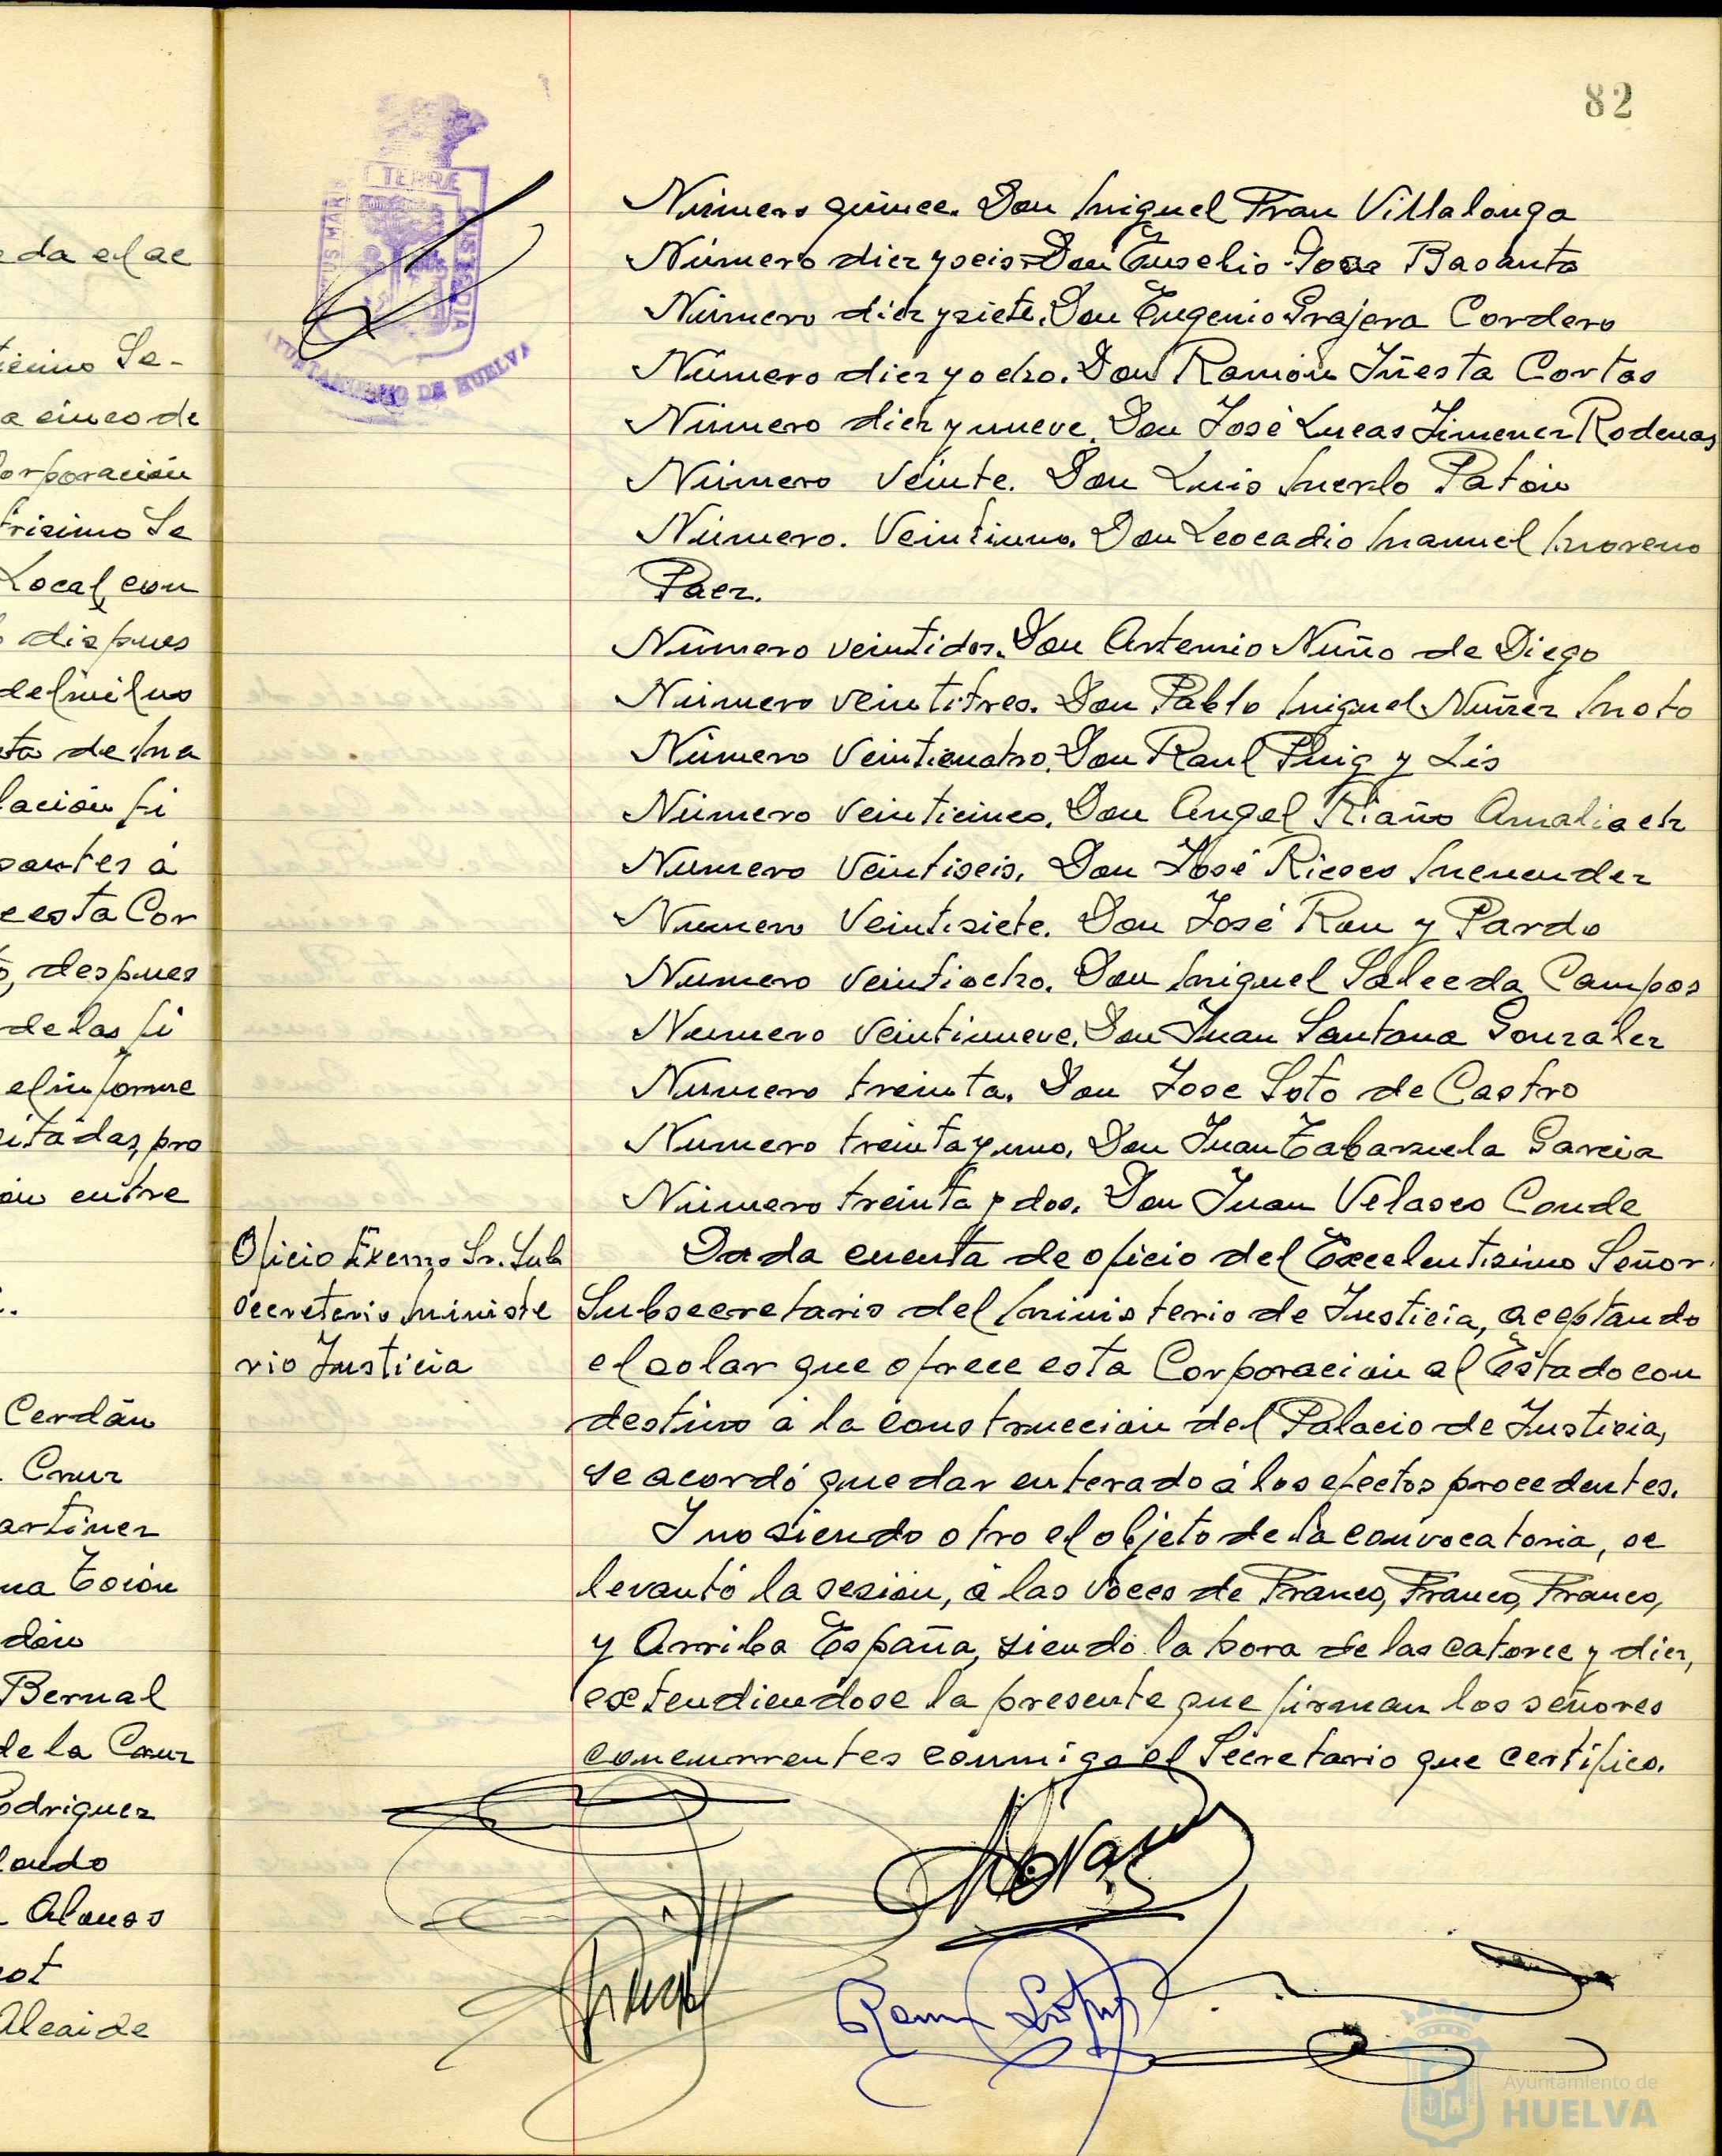 da el ac
Se-
a cinco de
orporación
trisimo Se
Local, con
dispues
del mil no
to de Ma
lación fi
santes á
e esta Cor
despues
de las fi
el informe
citadas, pro
entre
Cerdán
Cruz
artinez
na Toión
Bernal
de la Cruz
odriguez
Alonso
Alcaide
82
TERRÆ
CUSTODIA
AYUNTAMIENTO DE HUELVA
Número quince. Don Miguel Fran Villalonga
Número diez y seis. Don Eusebio Basanta
Número diez y siete. Don Eugenio Grajera Cordero
Número diez y ocho. Don Ramón Iñesta Cortas
Número diez y nueve. Don José Lucas Jimenez Rodenas
Número veinte. Don Luis Merlo Patón
Número. Veintiuno. Don Leocadio Manuel Moreno
Paez.
Número veintidos. Don Artemio Nuño de Diego
Número veintitres. Don Pablo Miguel Nuñez Moto
Número veinticuatro. Don Raul Puig y Lis
Número veinticinco. Don Angel Riaño
Numero veintiseis. Don José Riesco Menendez
Numero veintisiete. Don José Ron y Pardo
Numero veintiocho. Don Miguel Salceda Campos
Numero veintinueve. Don Juan Santana Gonzalez
Numero treinta. Don Jose Soto de Castro
Numero treinta y uno. Don Juan Tabarnela Garcia
Número treinta y dos. Don Juan Velasco Conde
Oficio Excmo Sr. Sub
secretario Ministe
rio Justicia
Dada cuenta de oficio del Excelentisimo Señor
Subsecretario del Ministerio de Justicia, aceptando
el solar que ofrece esta Corporación al Estado con
destino a la construccion del Palacio de Justicia,
se acordó quedar enterado á los efectos procedentes.
I no siendo otro el objeto de la convocatoria, se
levantó la sesion, a las voces de Franco, Franco, Franco,
y Arriba España, siendo la hora de las catorce y diez,
extendiendose la presente que firman los señores
concurrentes conmigo el Secretario que certifico.
Ayuntamiento de
HUELVA